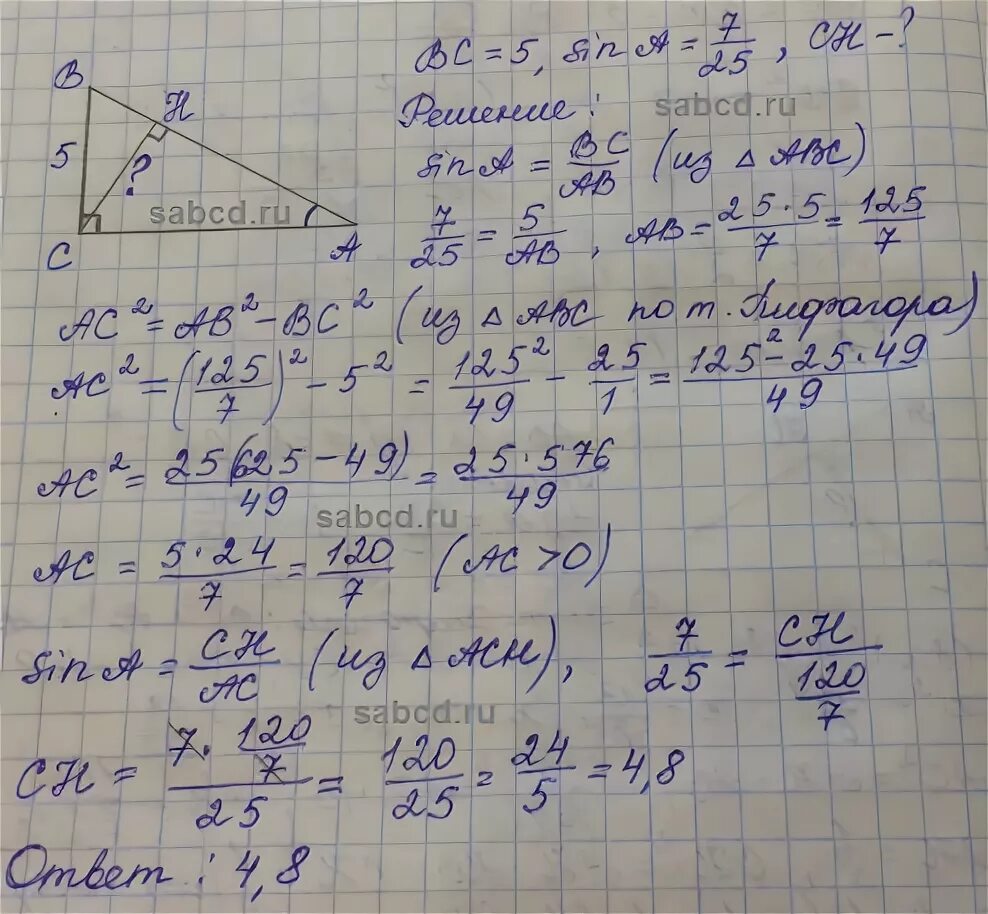 BC = 5, sin A = 7/25, CH - ?
B
H
5
?
C
A
Решение:
sabcd.ru
sin A = BC/AB (из △ ABC)
sabcd.ru
7/25 = 5/AB, AB = 25·5/7 = 125/7
AC² = AB² - BC² (из △ ABC по т. Пифагора)
AC² = (125/7)² - 5² = 125²/49 - 25/1 = 125² - 25·49/49
AC² = 25(625 - 49)/49 = 25·576/49
sabcd.ru
AC = 5·24/7 = 120/7 (AC > 0)
sin A = CH/AC (из △ ACH), 7/25 = CH/120/7
sabcd.ru
CH = 7·120/7/25 = 120/25 = 24/5 = 4,8
Ответ: 4,8